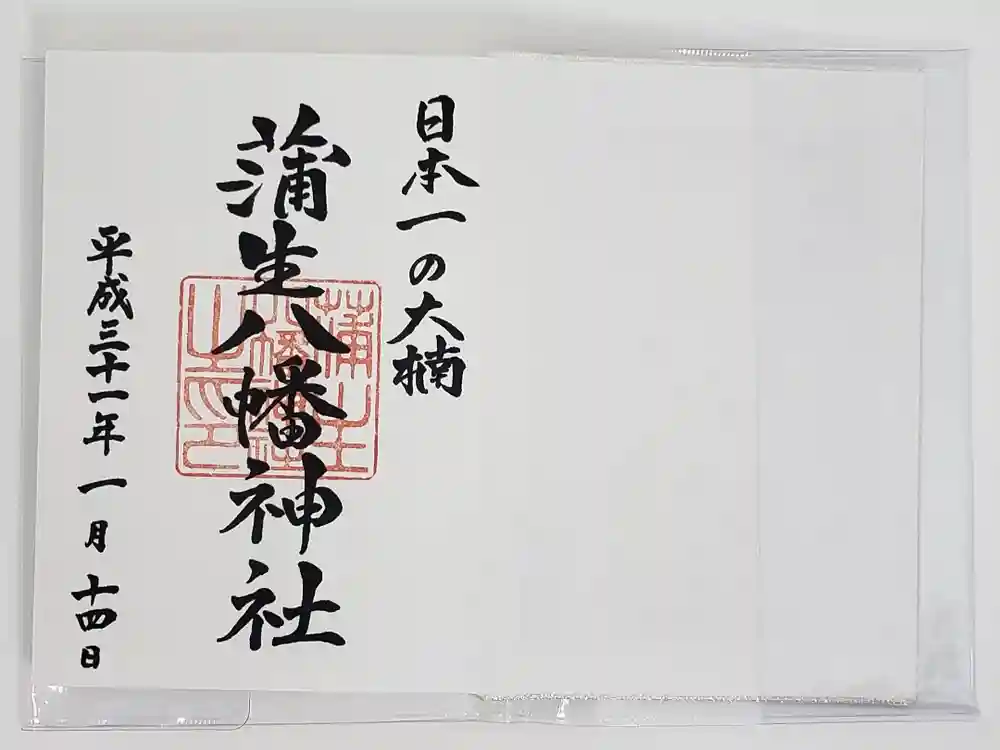 日本一の大楠
蒲生八幡神社
蒲生
八幡神社
之印
平成三十一年一月十四日